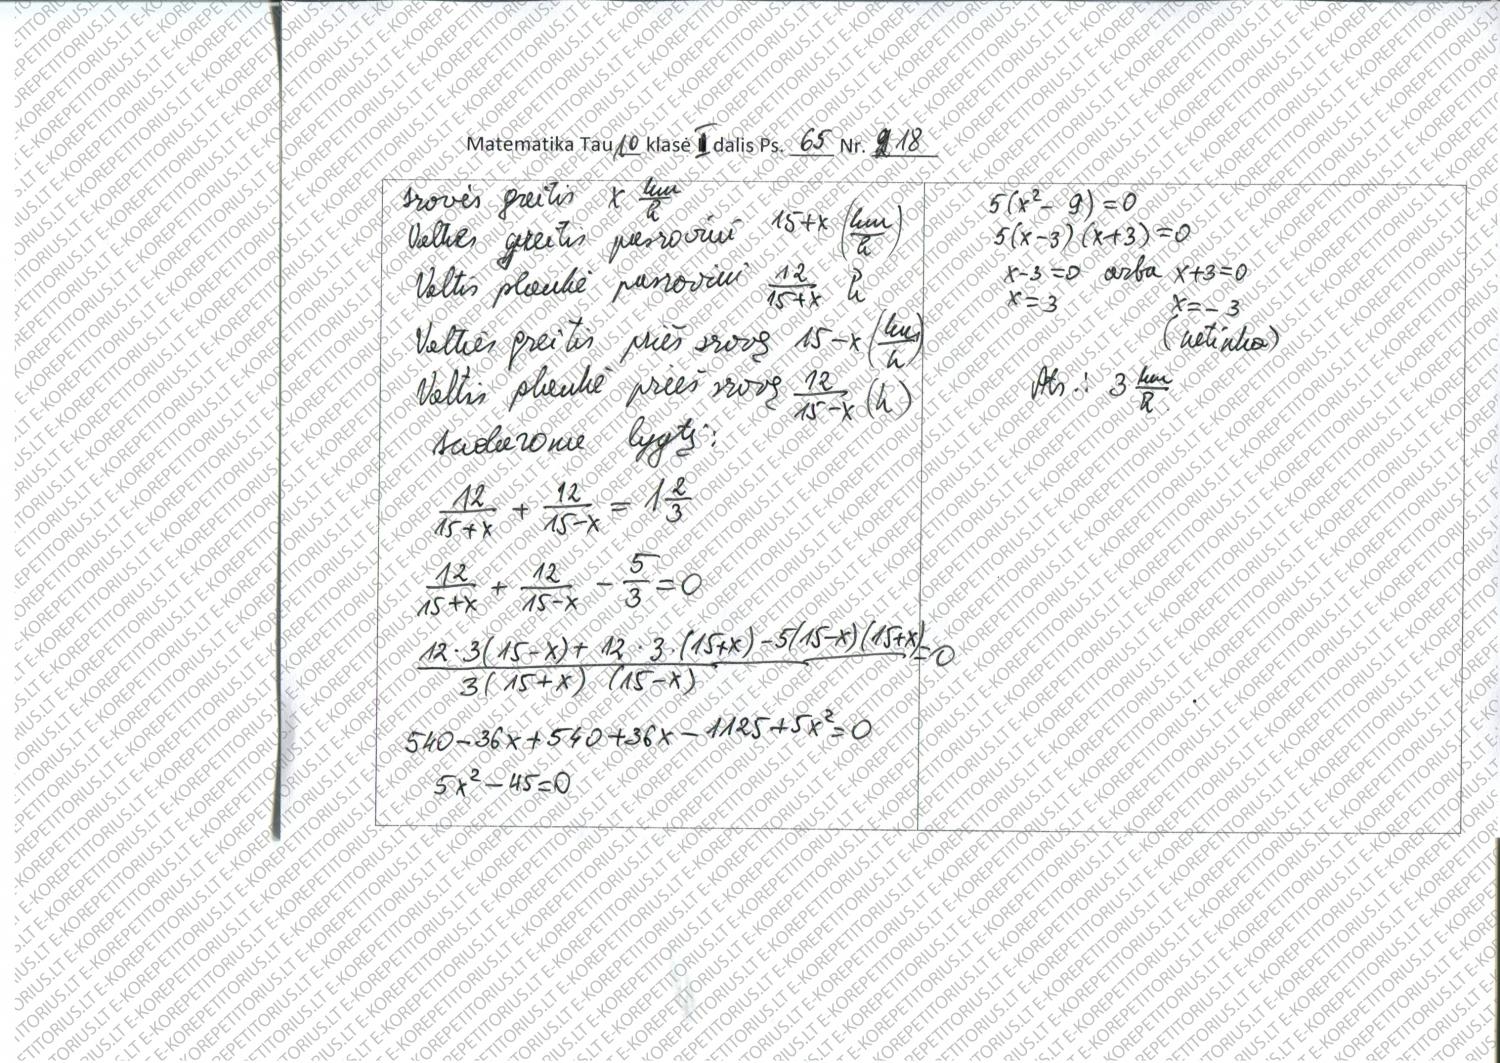 Matematika Tau 10 klasė I dalis Ps. 65 Nr. 218
srovės greitis x km/h
Valties greitis pasroviui 15+x (km/h)
Valtis plaukė pasroviui 12/(15+x) h
Valties greitis prieš srovę 15-x (km/h)
Valtis plaukė prieš srovę 12/(15-x) (h)
sudarome lygtį:
12/(15+x) + 12/(15-x) = 1 2/3
12/(15+x) + 12/(15-x) - 5/3 = 0
(12·3(15-x) + 12·3·(15+x) - 5(15-x)(15+x))/(3(15+x)(15-x)) = 0
540-36x+540+36x-1125+5x²=0
5x²-45=0
5(x²-9)=0
5(x-3)(x+3)=0
x-3=0 arba x+3=0
x=3 x=-3
(netinka)
Ats.: 3 km/h.
E-KOREPETITORIUS.LT